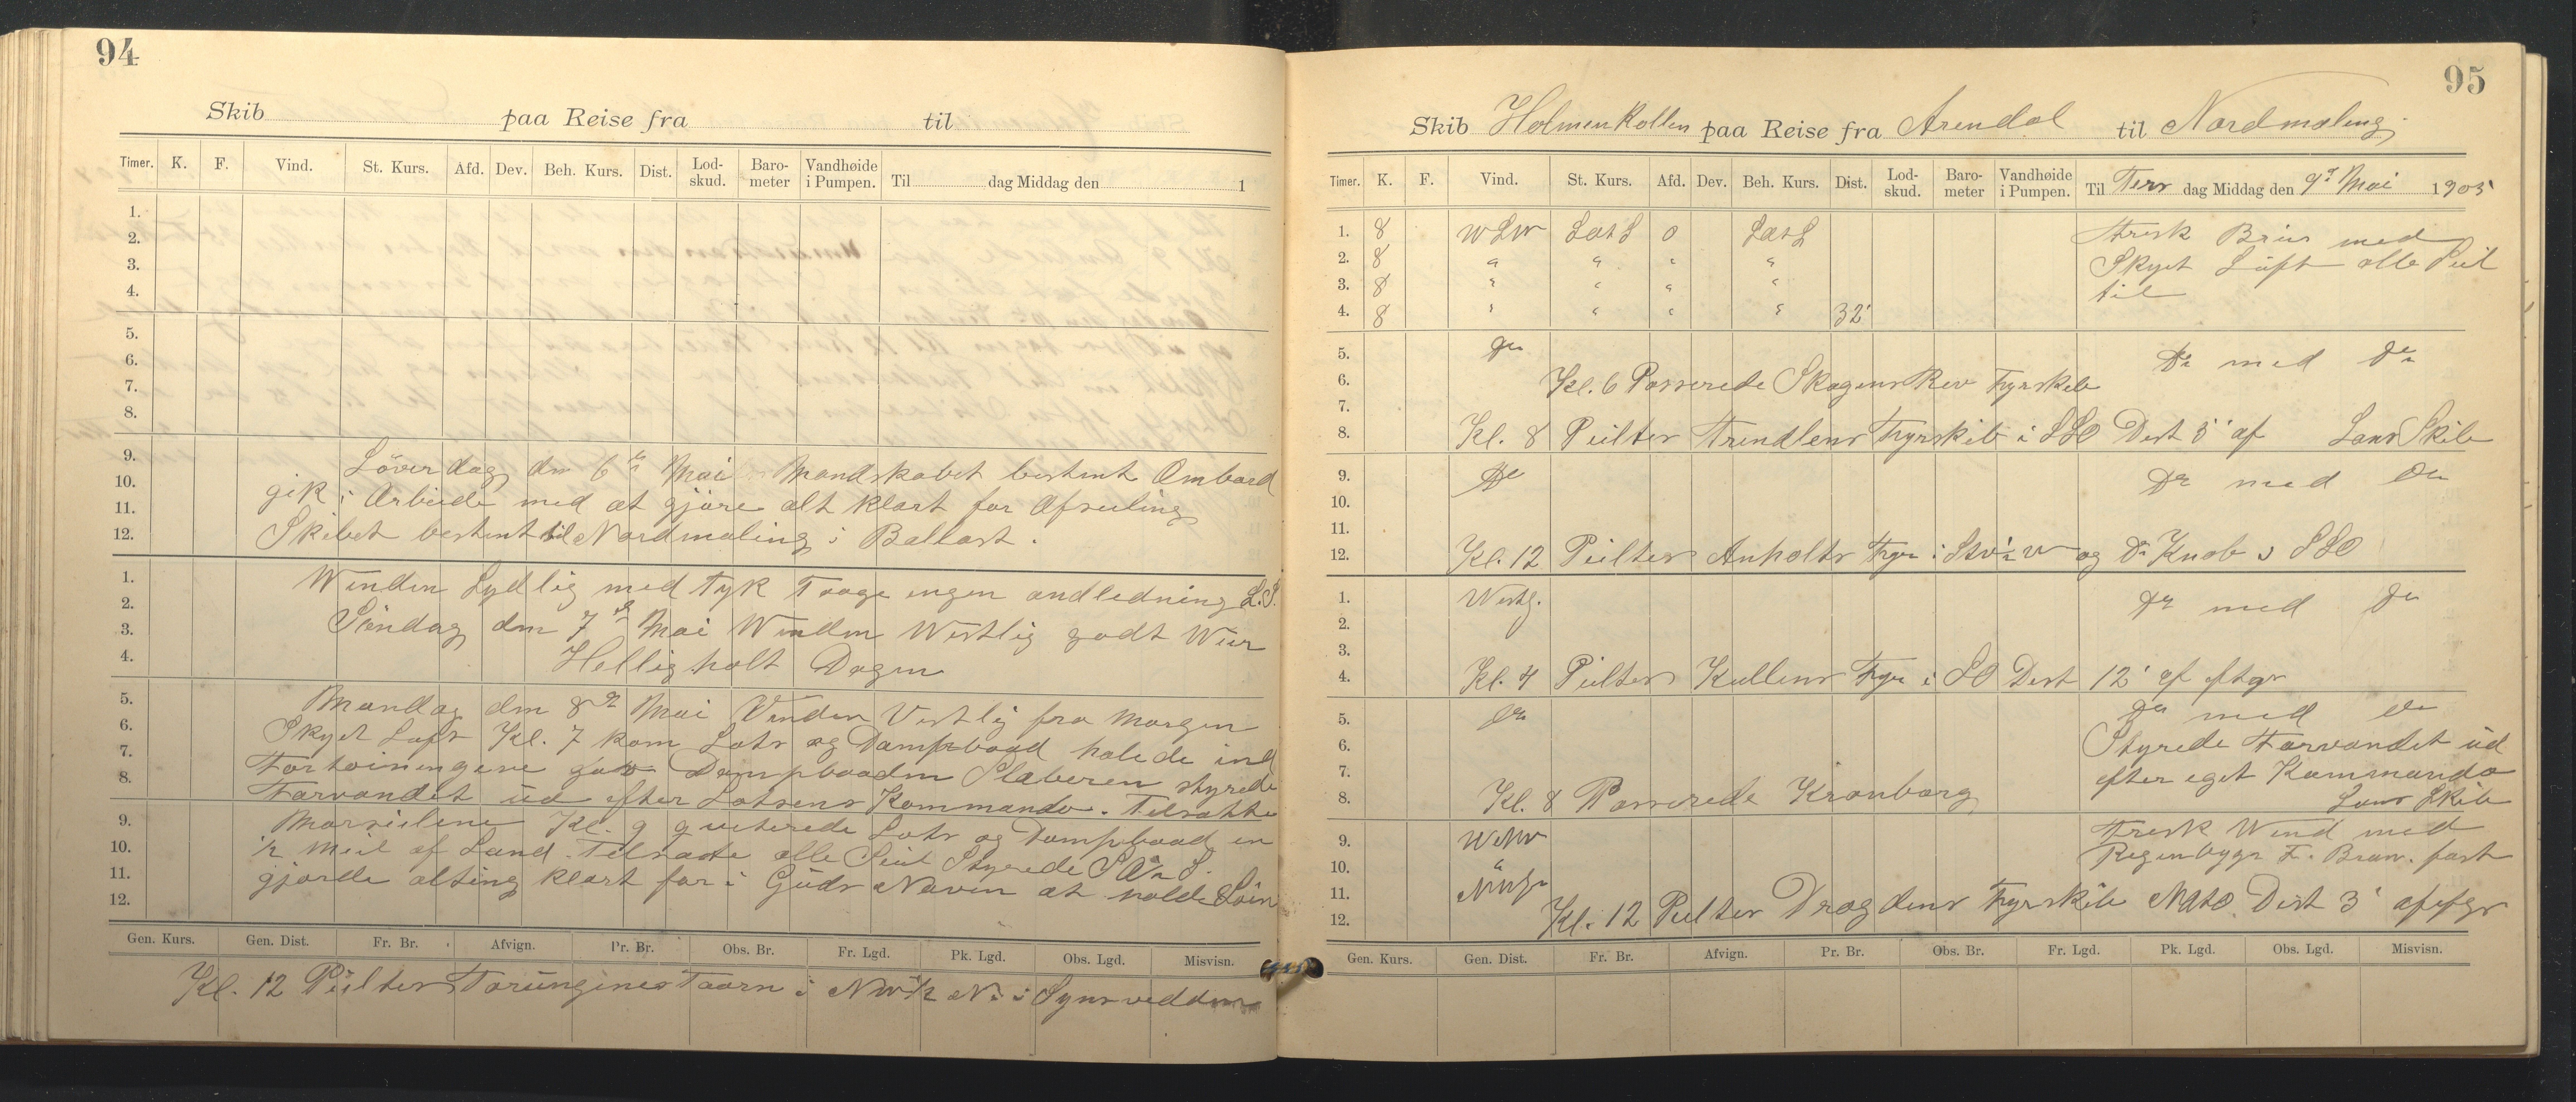 94
Skib paa Reise fra til
Timer. K. F. Vind. St. Kurs. Afd. Dev. Beh. Kurs. Dist. Lod-skud. Baro-meter Vandhøide i Pumpen. Til dag Middag den 1
1.
2.
3.
4.
5.
6.
7.
8.
9. Löverdag den 6te Mai Mandskabet bestemt Ombord
10. gik i Arbeide med at gjöre alt klart for Afseiling
11. Skibet bestemt til Nordmaling i Ballast.
12.
1. Winden Sydlig med tyk Taage ingen andledning L.S.
2. Söndag den 7de Mai Winden Westlig godt Weir
3. Helligholt Dagen
4.
5. Mandag den 8de Mai Vinden Vestlig fra Morgen
6. Skyet Luft Kl. 7 kom Lots og Dampbaad halede ind
7. Fortöiningene Dampbaaden Slæberen styrede
8. Farvandet ud efter Lotsens Kommando. Tilsatte
9. Marseilene Kl. 9 quiterede Lots og Dampbaad en
10. 1/2 Meil af Land. Tilsatte alle Seil Styrede
11. gjorde alting klart for i Guds Navn at holde Söen
12.
Gen. Kurs. Gen. Dist. Fr. Br. Afvign. Pr. Br. Obs. Br. Fr. Lgd. Pk. Lgd. Obs. Lgd. Misvisn.
Kl. 12 Peilter Torungenes Taarn i NW 1/2 N. i
95
Skib Holmenkollen paa Reise fra Arendal til Nordmaling
Timer. K. F. Vind. St. Kurs. Afd. Dev. Beh. Kurs. Dist. Lod-skud. Baro-meter Vandhøide i Pumpen. Til Ters dag Middag den 9de Mai 1905
1. 8 WSW 0 Frisk Bris med
2. 8 " " " " Skyet Luft alle Seil
3. 8 " " " " til
4. 8 " " " " 32'
5. Do Do med Do
6. Kl. 6 Passerede Skagens Rev Fyrskib
7.
8. Kl. 8 Peilter Trindlens Fyrskib i SSO Dist 5' af Lars Skib
9. Do Do med Do
10.
11.
12. Kl. 12 Peilter Anholts Fyr i og Do Knob i SSO
1. Westl. Do med Do
2.
3.
4. Kl. 4 Peilter Kullens Fyr i SO Dist 12' af
5. Do Do med Do
6. Styrede Farvandet ud
7. efter eget Kommando
8. Kl. 8 Passerede Kronborg Lars Skib
9. WNW Frisk Wind med
10. " Regenbyger F. Bram. fast
11.
12. Kl. 12 Peilter Drogdens Fyrskib Dist 3'
Gen. Kurs. Gen. Dist. Fr. Br. Afvign. Pr. Br. Obs. Br. Fr. Lgd. Pk. Lgd. Obs. Lgd. Misvisn.